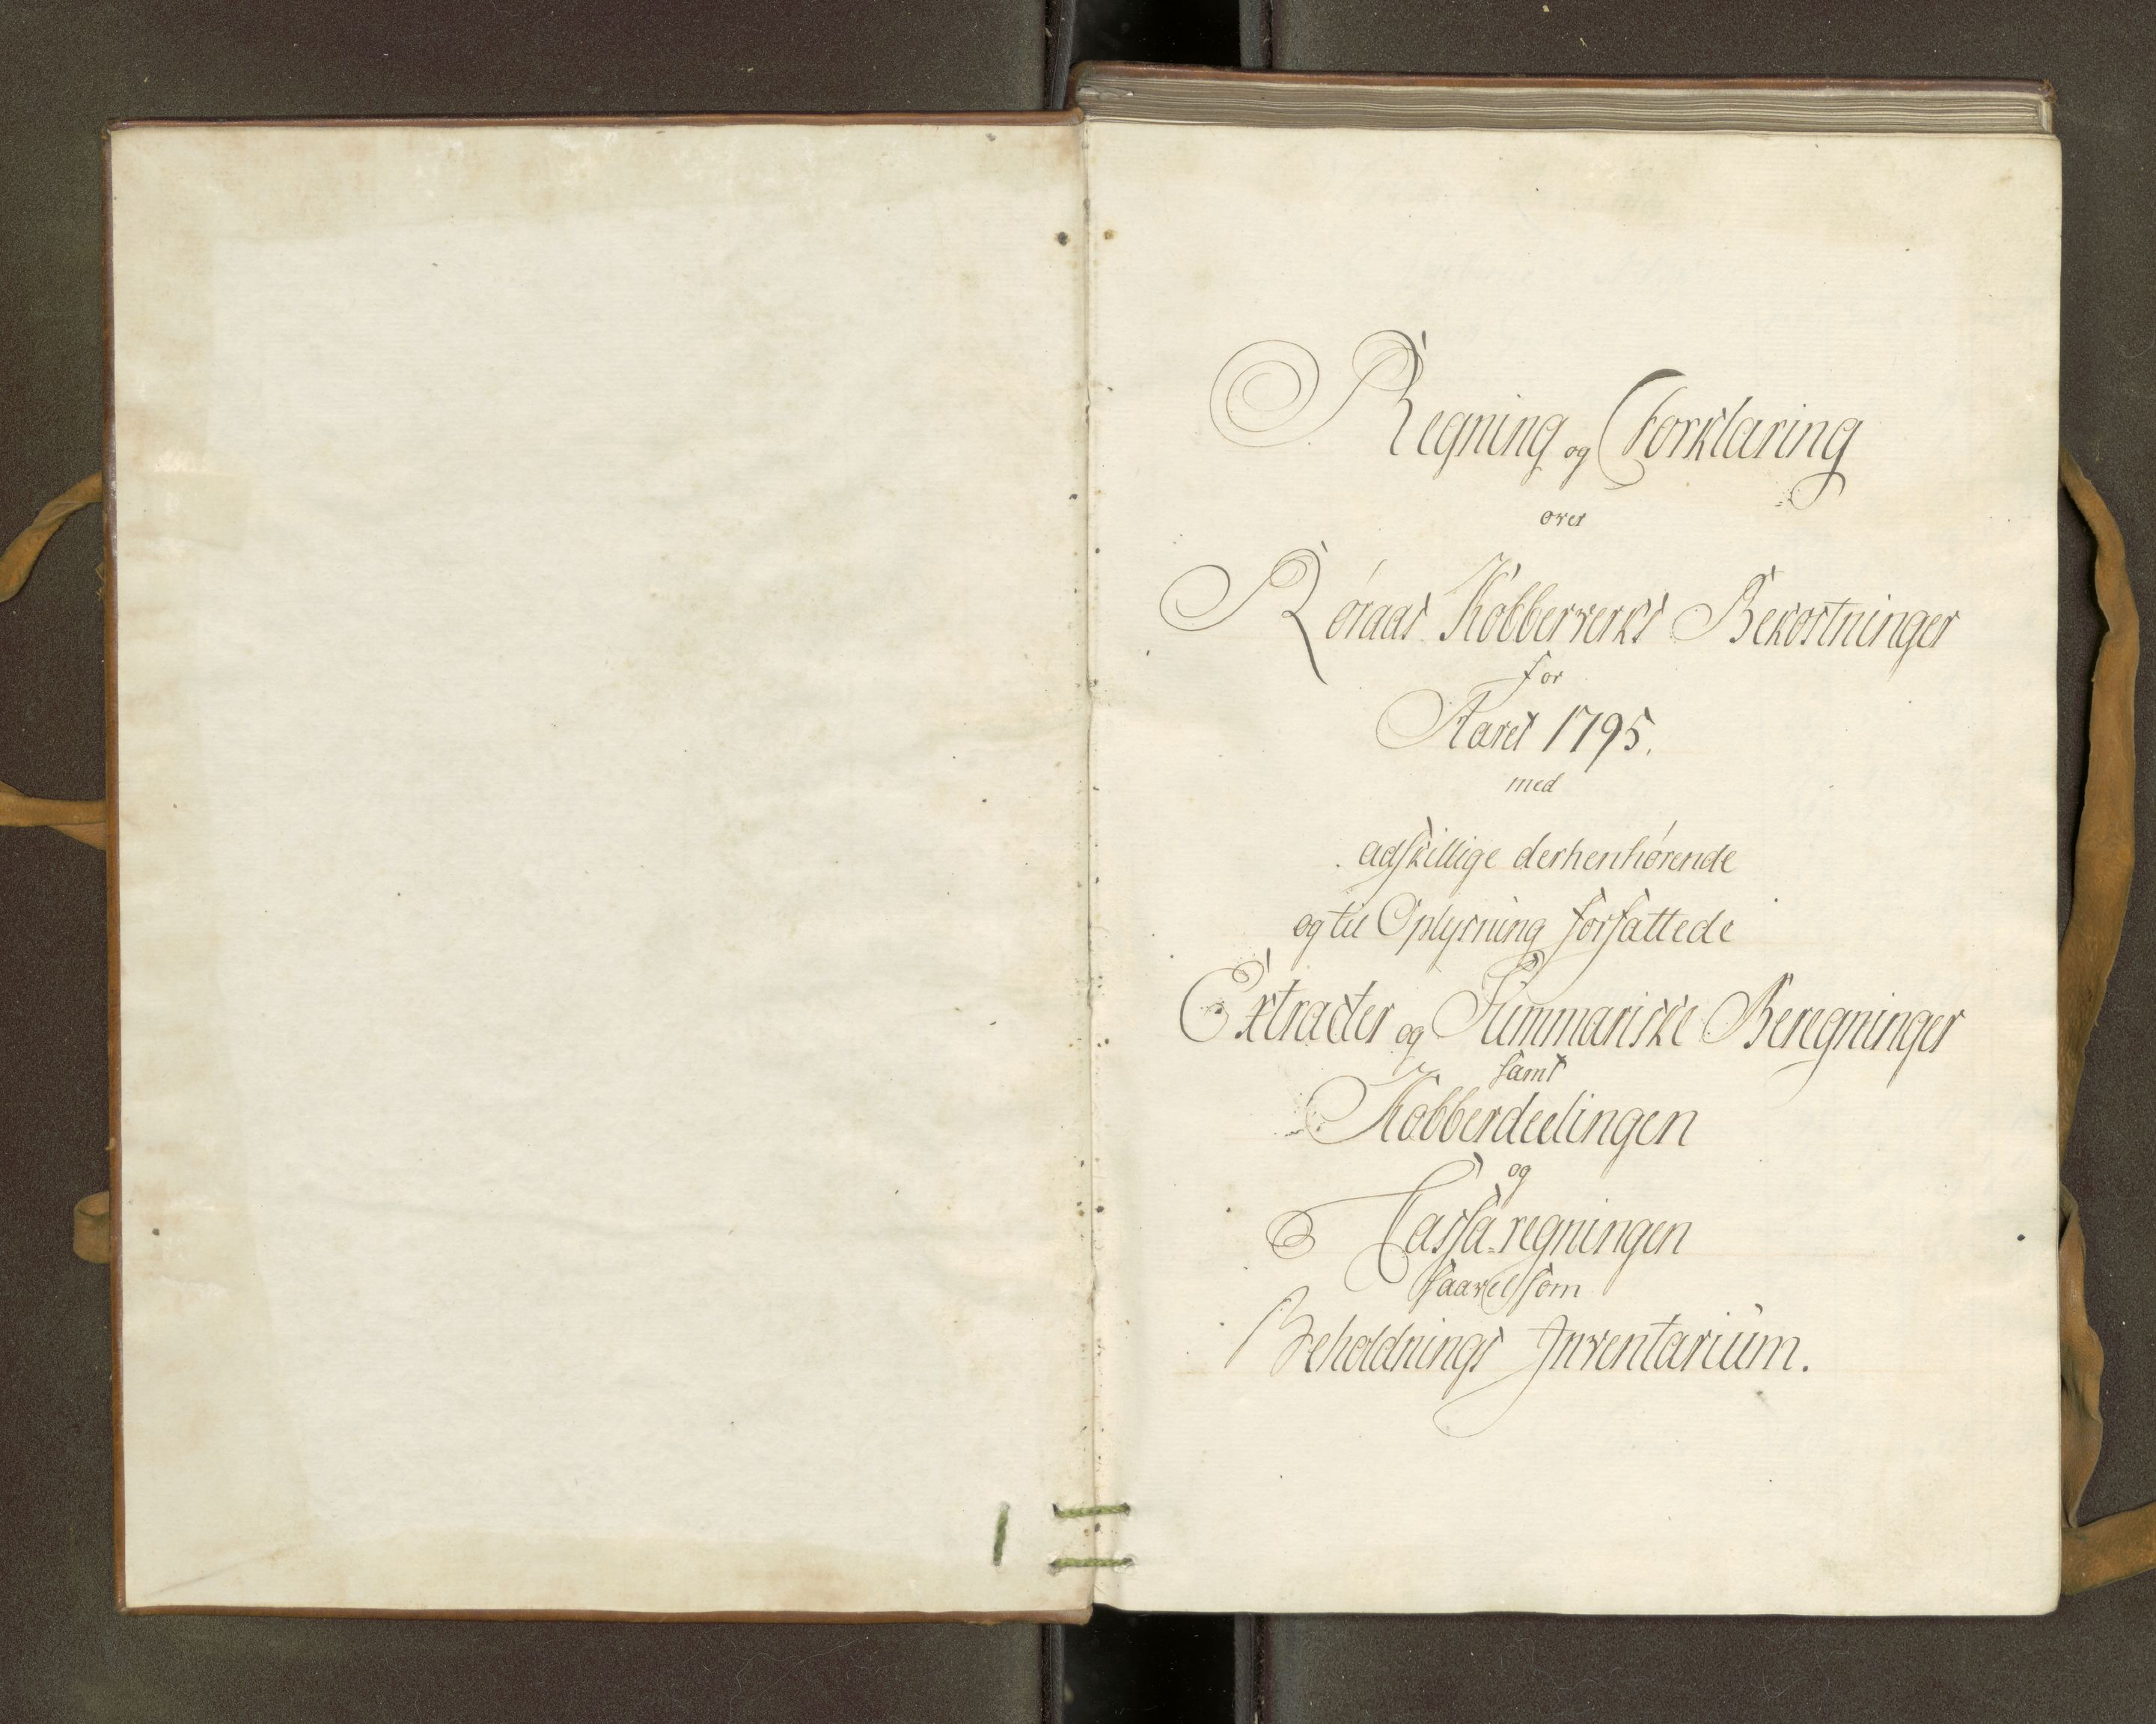 Regning og Forklaring
over
Røraas Kobberverks Bekostninger
for
Aaret 1795.
med
adskillige derhenhørende
og til Oplysning forfattede
Extracter og Summariske Beregninger
samt
Kobberdeelingen
og
Cassa-regningen
saavelsom
Beholdnings Inventarium.